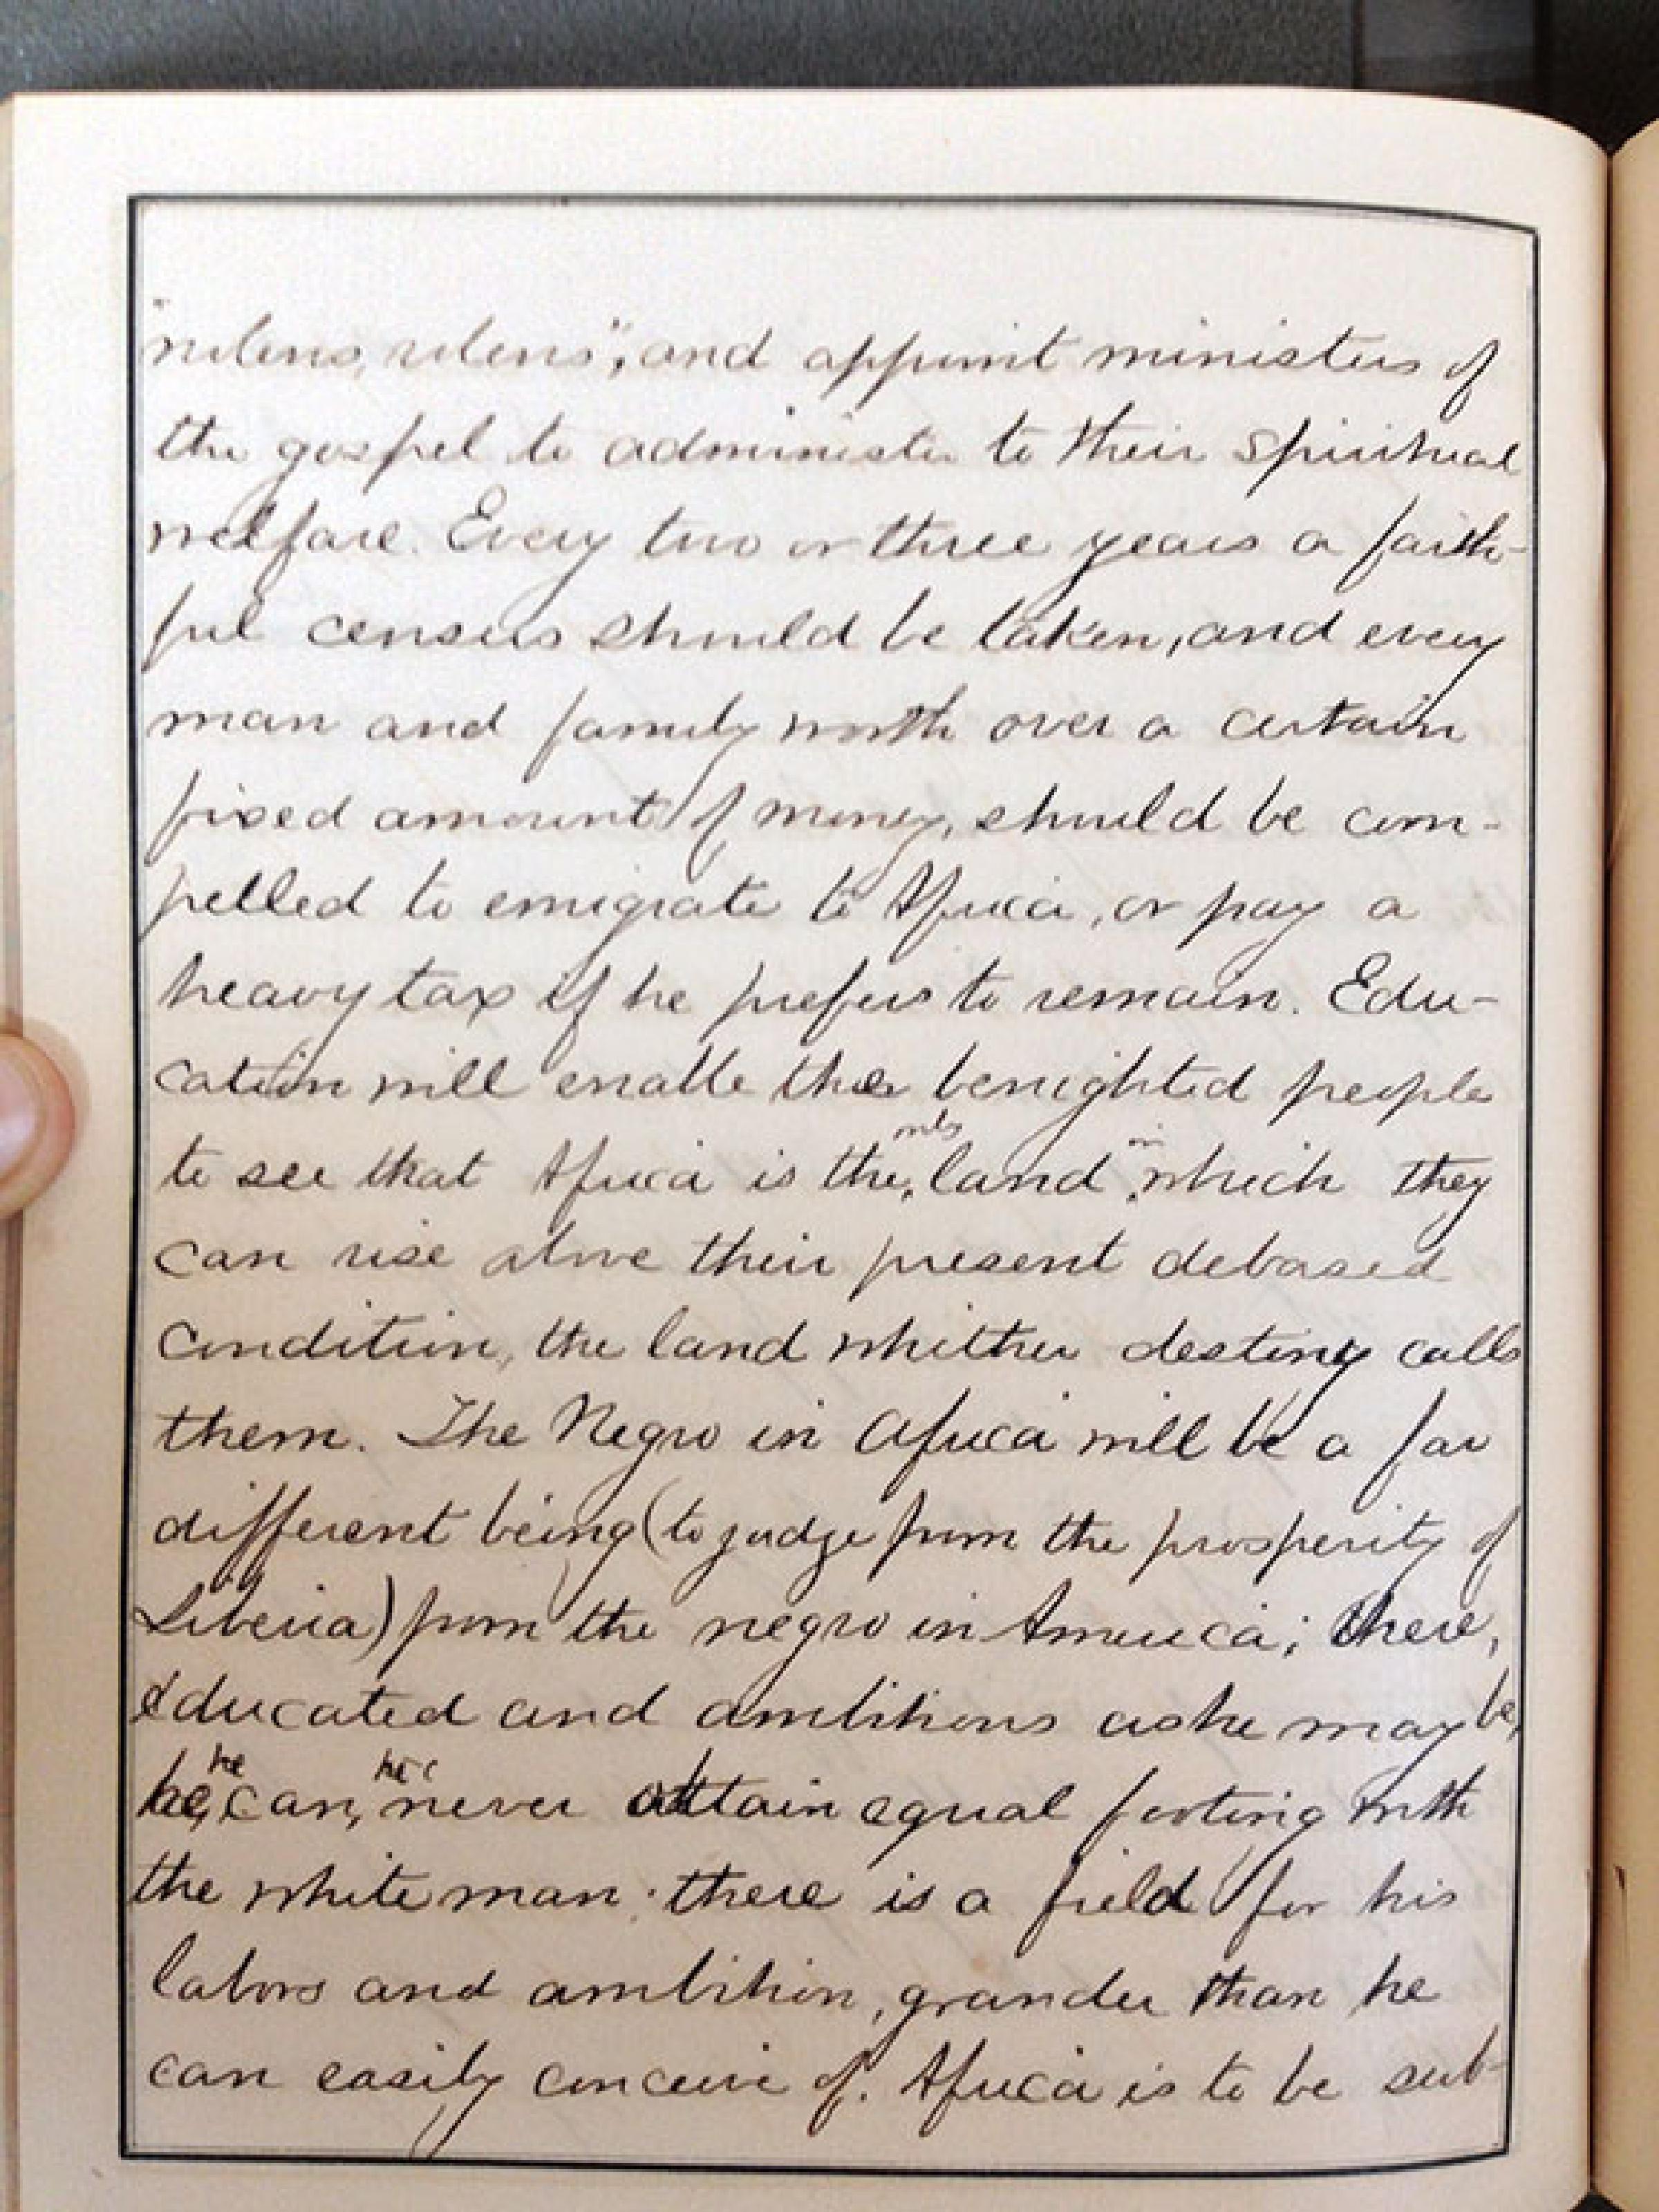 "nolens, volens", and appoint ministers of
the gospel to administer to their spiritual
welfare. Every two or three years a faith-
ful census should be taken, and every
man and family worth over a certain
fixed amount of money, should be com-
pelled to emigrate to Africa, or pay a
heavy tax if he prefers to remain. Edu-
cation will enable the benighted people
to see that Africa is the only land in which they
can rise above their present debased
condition, the land whither destiny calls
them. The Negro in Africa will be a far
different being (to judge from the prosperity of
Liberia) from the negro in America; there,
educated and ambitious as he may be,
he can, never attain equal footing with
the white man: there is a field for his
labors and ambition, grander than he
can easily conceive of. Africa is to be sub-